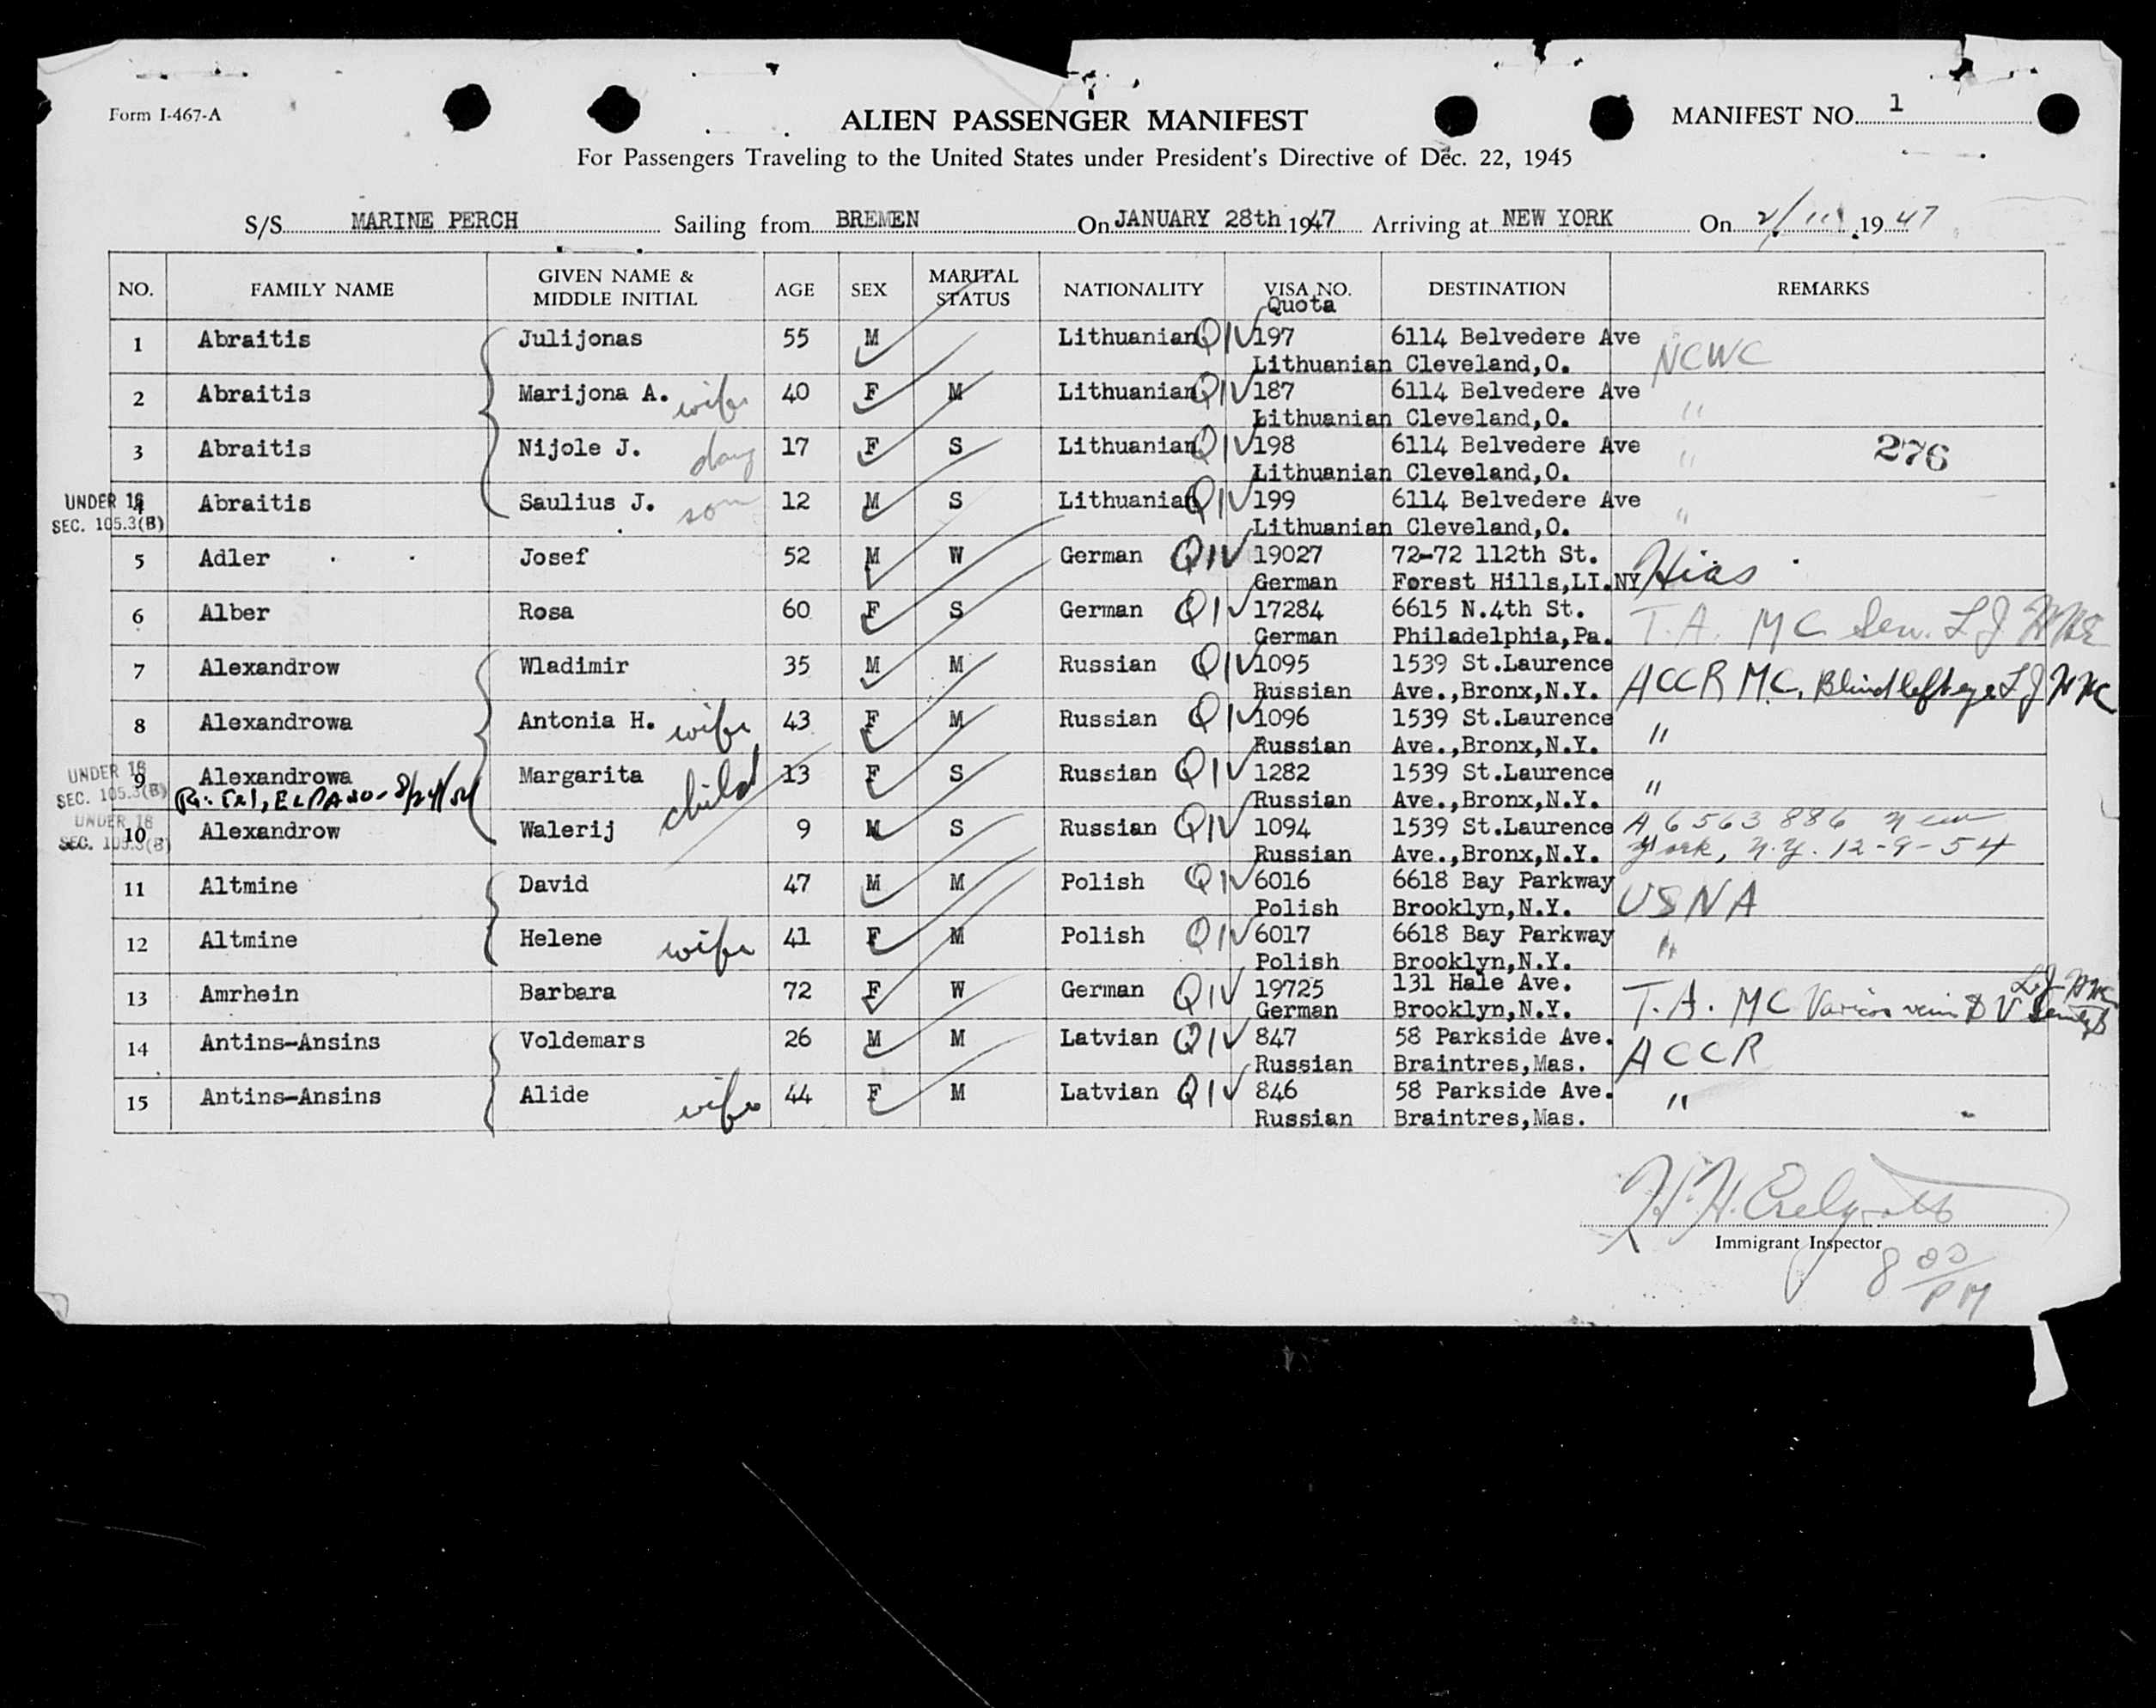 Form I-467-A
ALIEN PASSENGER MANIFEST
MANIFEST NO. 1
For Passengers Traveling to the United States under President's Directive of Dec. 22, 1945
S/S MARINE PERCH Sailing from BREMEN On JANUARY 28th 1947 Arriving at NEW YORK On 1947
NO. FAMILY NAME GIVEN NAME & MIDDLE INITIAL AGE SEX MARITAL STATUS NATIONALITY VISA NO. Quota DESTINATION REMARKS
1 Abraitis Julijonas 55 M Lithuanian QIV 197 6114 Belvedere Ave NCWC
Lithuanian Cleveland,O.
2 Abraitis Marijona A. wife 40 F M Lithuanian QIV 187 6114 Belvedere Ave "
Lithuanian Cleveland,O.
3 Abraitis Nijole J. daug 17 F S Lithuanian QIV 198 6114 Belvedere Ave " 276
Lithuanian Cleveland,O.
UNDER 16 4 Abraitis Saulius J. son 12 M S Lithuanian QIV 199 6114 Belvedere Ave "
SEC. 105.3(B) Lithuanian Cleveland,O.
5 Adler Josef 52 M W German QIV 19027 72-72 112th St. Hias
German Forest Hills,LI.NY
6 Alber Rosa 60 F S German QIV 17284 6615 N.4th St. T.A. MC Sen.
German Philadelphia,Pa.
7 Alexandrow Wladimir 35 M M Russian QIV 1095 1539 St.Laurence ACCR MC. Blind left eye
Russian Ave.,Bronx,N.Y.
8 Alexandrowa Antonia H. wife 43 F M Russian QIV 1096 1539 St.Laurence "
Russian Ave.,Bronx,N.Y.
UNDER 16 9 Alexandrowa Margarita child 13 F S Russian QIV 1282 1539 St.Laurence "
SEC. 105.3(B) EL PASO- Russian Ave.,Bronx,N.Y.
UNDER 16 10 Alexandrow Walerij 9 M S Russian QIV 1094 1539 St.Laurence A 6563886 New
SEC. 105.3(B) Russian Ave.,Bronx,N.Y. York, N.Y. 12-9-54
11 Altmine David 47 M M Polish QIV 6016 6618 Bay Parkway USNA
Polish Brooklyn,N.Y.
12 Altmine Helene wife 41 F M Polish QIV 6017 6618 Bay Parkway "
Polish Brooklyn,N.Y.
13 Amrhein Barbara 72 F W German QIV 19725 131 Hale Ave. T.A. MC
German Brooklyn,N.Y.
14 Antins-Ansins Voldemars 26 M M Latvian QIV 847 58 Parkside Ave. ACCR
Russian Braintres,Mas.
15 Antins-Ansins Alide wife 44 F M Latvian QIV 846 58 Parkside Ave. "
Russian Braintres,Mas.
H.H.
Immigrant Inspector
8 00 PM